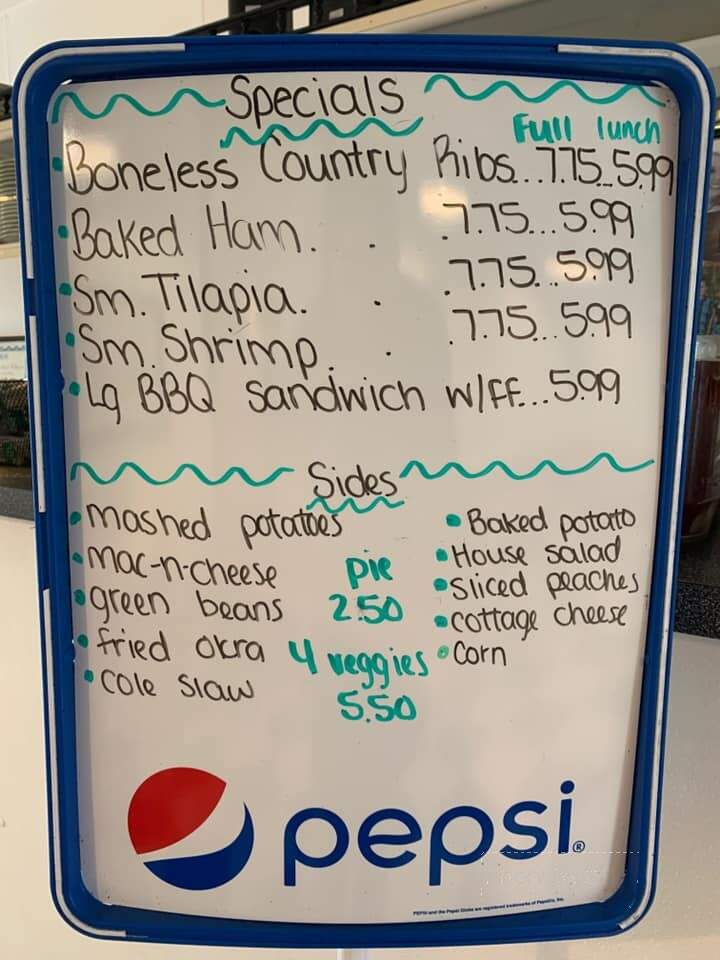 Specials
Full lunch
Boneless Country Ribs...7.75...5.99
Baked Ham. . .7.75...5.99
Sm. Tilapia. . .7.75...5.99
Sm. Shrimp. . .7.75...5.99
Lg BBQ sandwich w/FF...5.99
Sides
mashed potatoes
mac-n-cheese
green beans
fried okra
cole slaw
pie
2.50
4 veggies
5.50
Baked potato
House salad
Sliced peaches
cottage cheese
Corn
pepsi®
PEPSI and the Pepsi Globe are registered trademarks of PepsiCo, Inc.